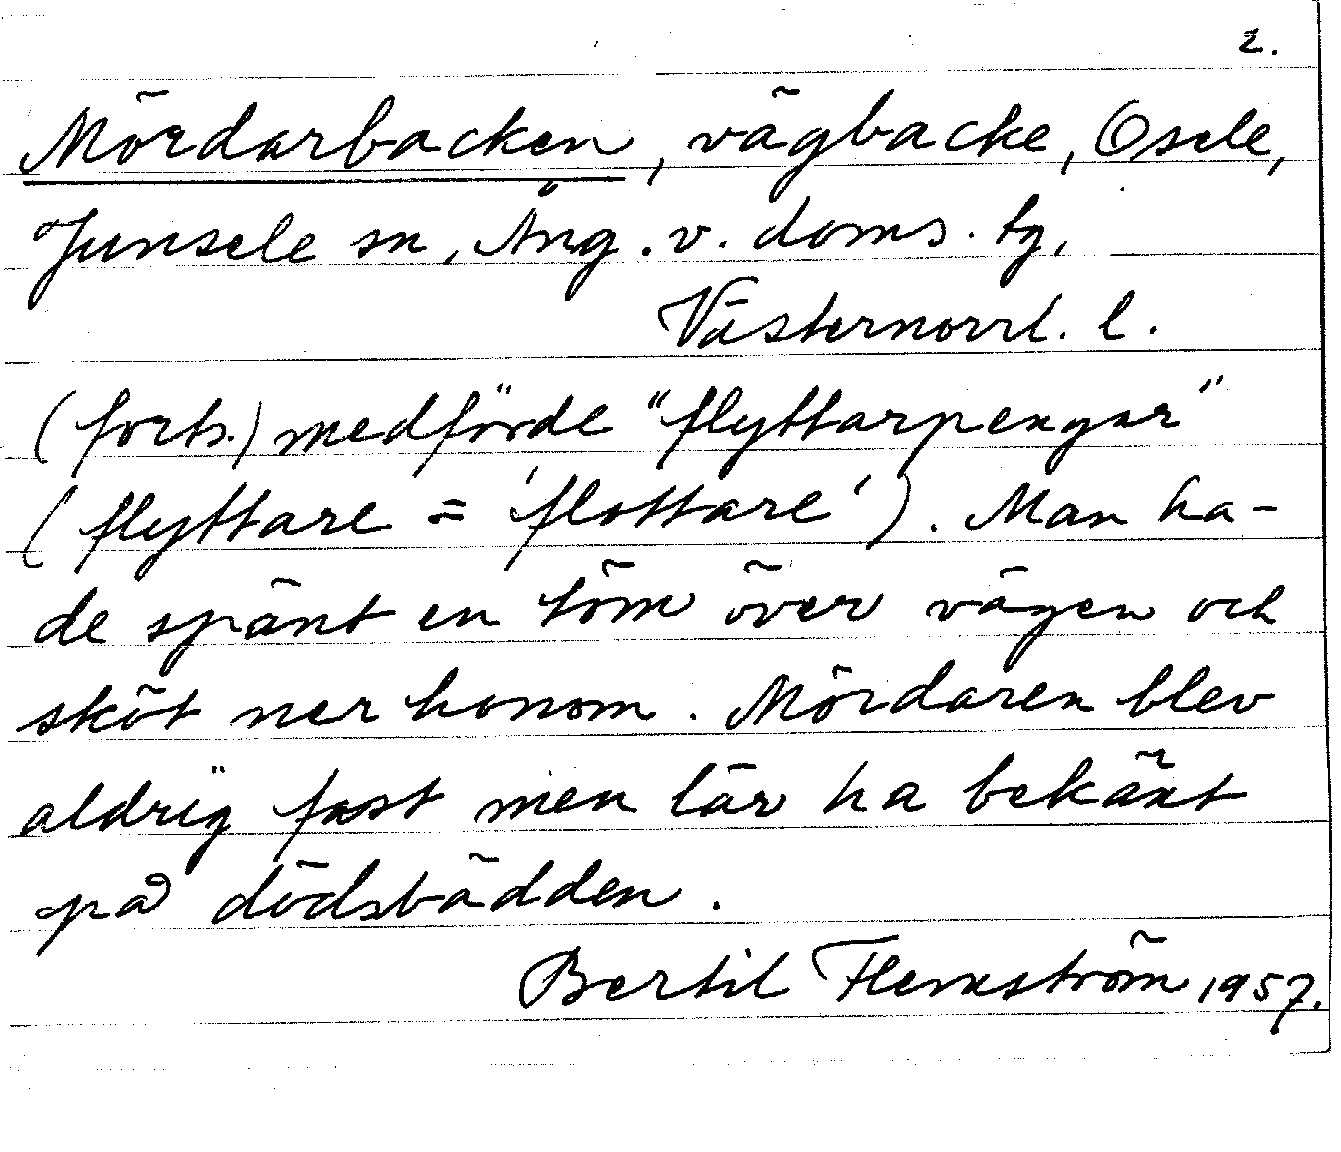 2.
Mördarbacken, vägbacke, Osele,
Junsele sn, Ång. v. doms. tg,
Västernorrl. l.
(forts.) medförde "flyttarpengar"
(flyttare = 'flottare'). Man ha-
de spänt en töm över vägen och
sköt ner honom. Mördaren blev
aldrig fast men lär ha bekänt
på dödsbädden.
Bertil Flemström 1957.